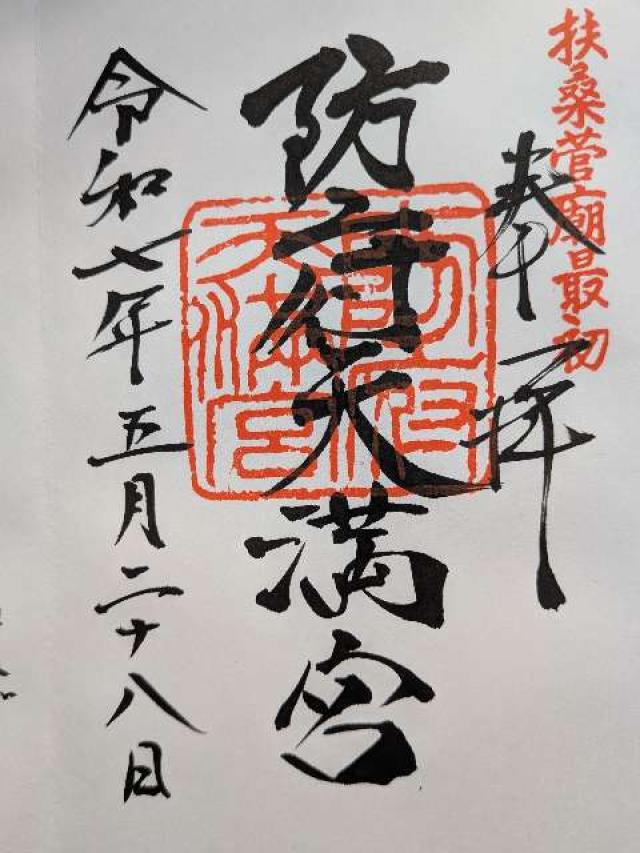 扶桑菅廟最初
奉拝
防府天満宮
防府天満宮
令和七年五月二十八日